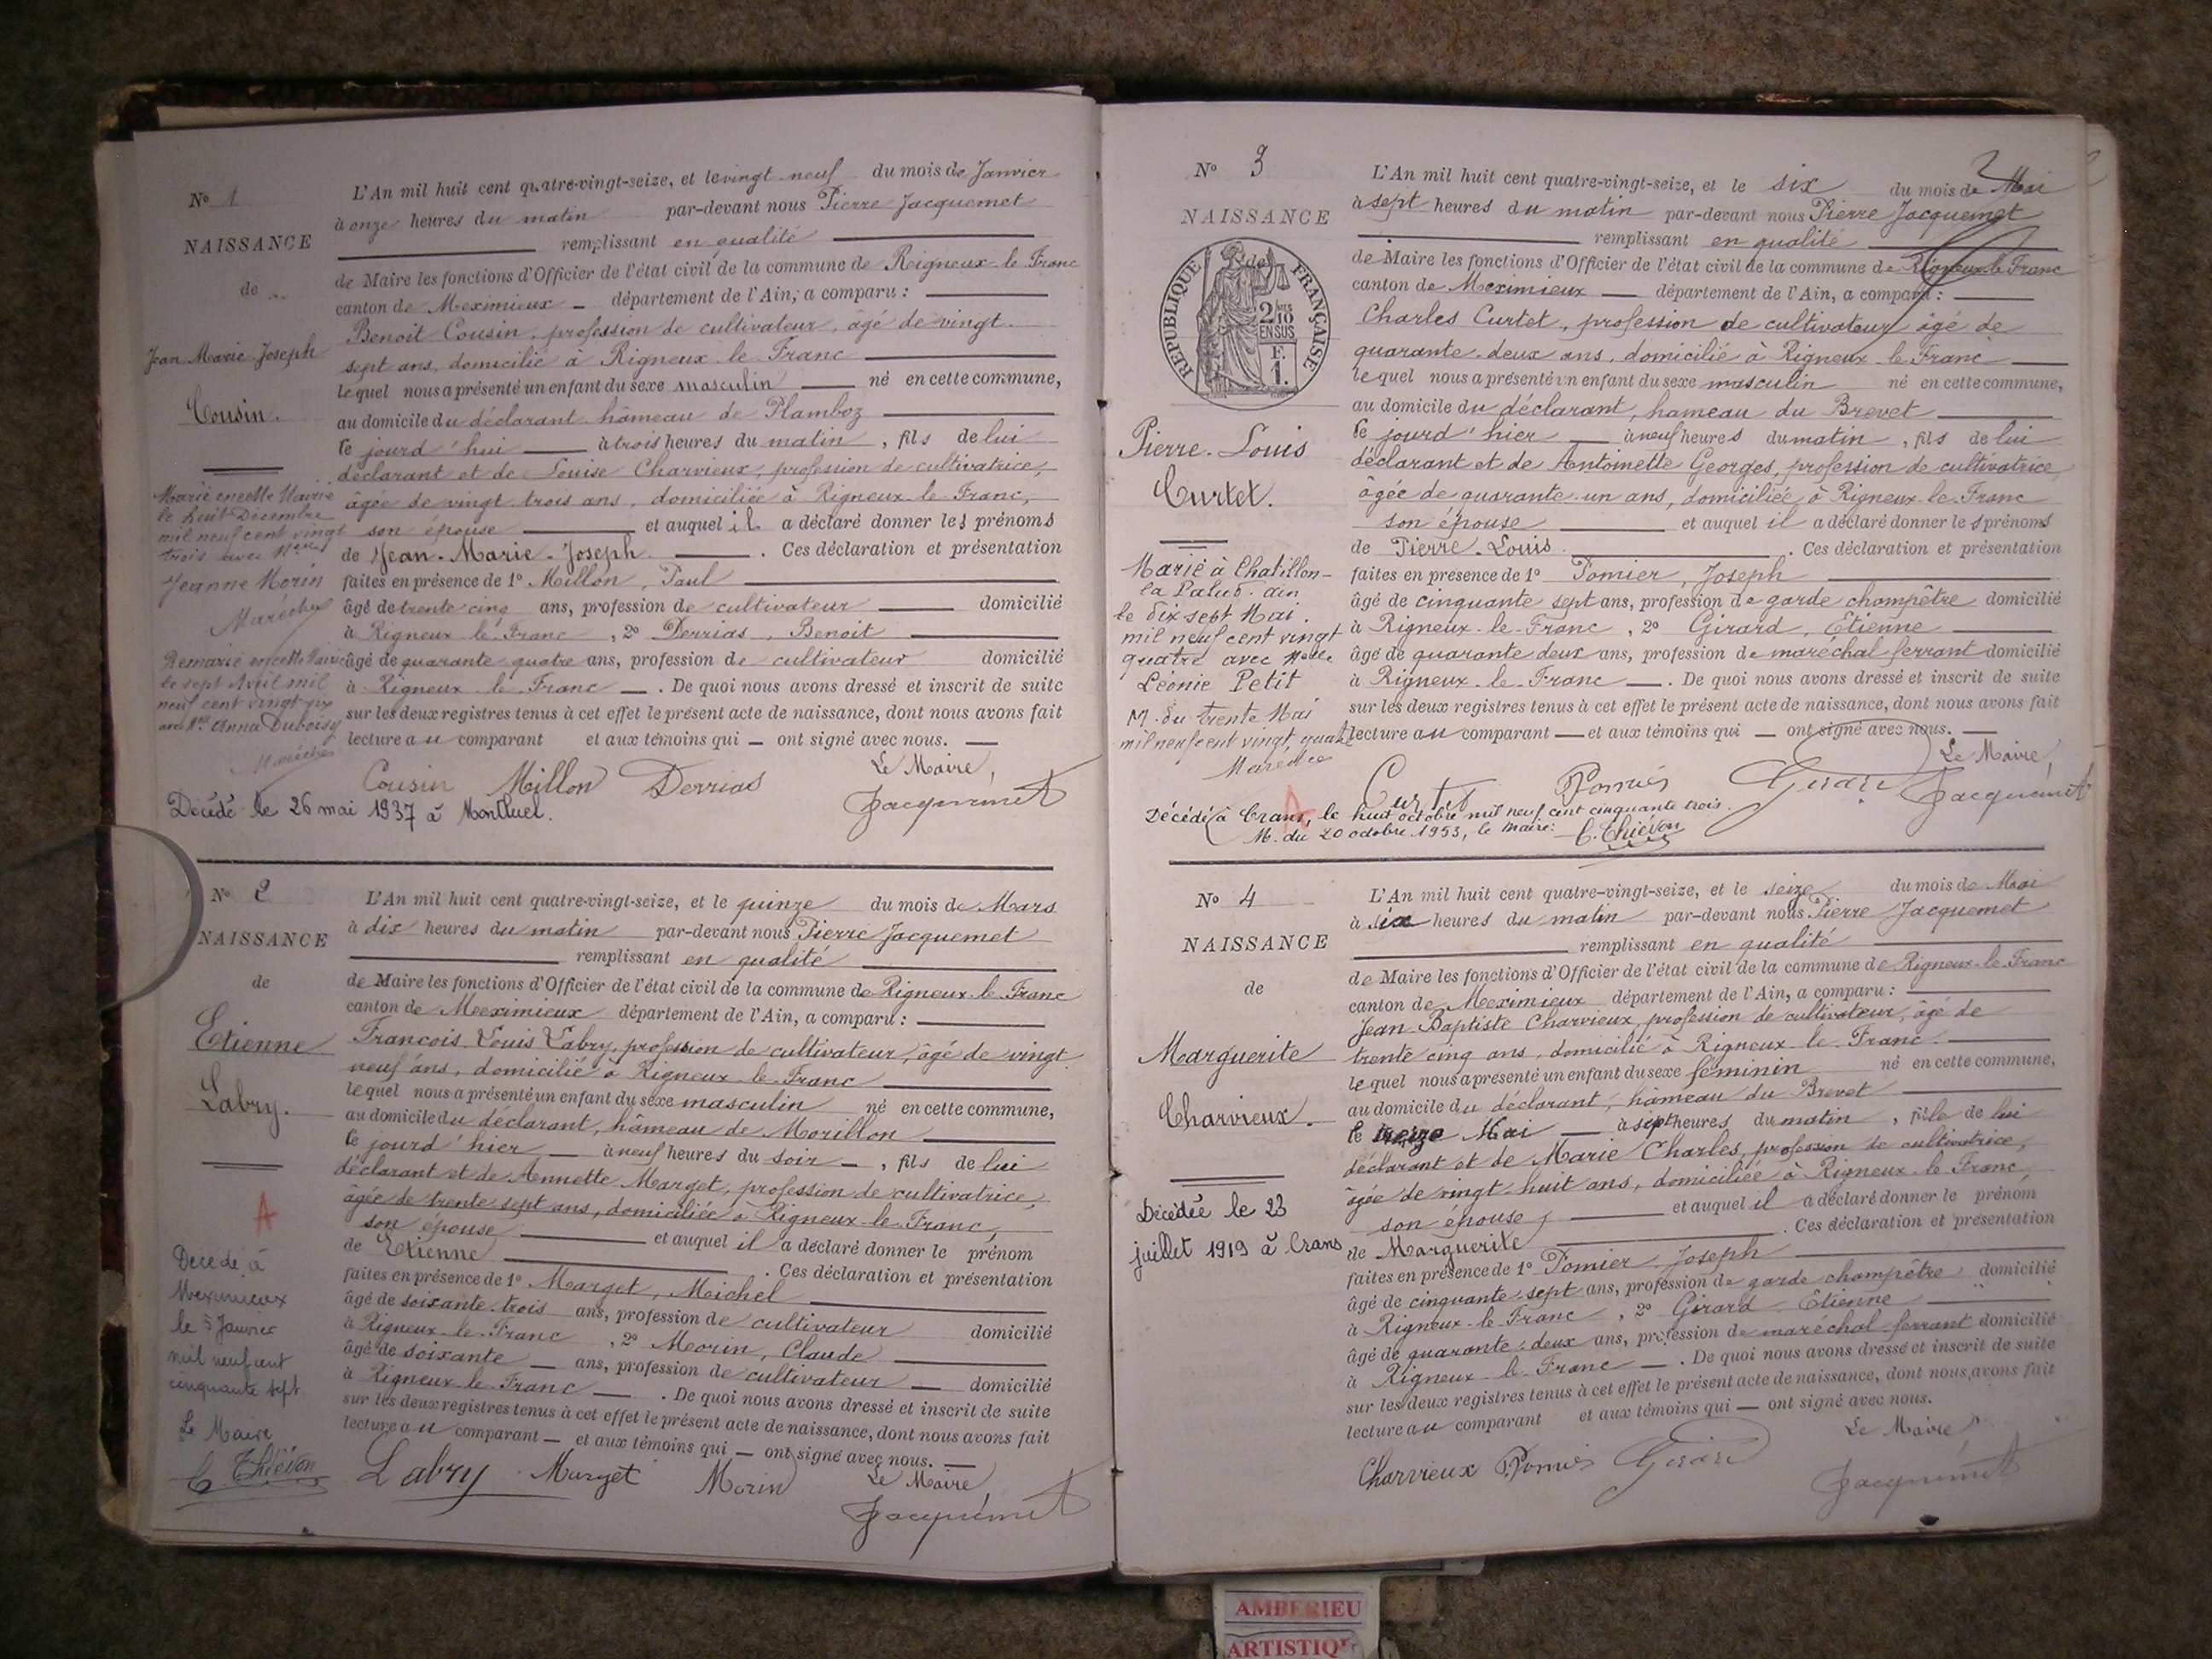 N° 1
NAISSANCE
de
Jean Marie Joseph
Cousin.
Marié en cette Mairie
le huit Décembre
mil neuf cent vingt
trois avec Melle
Jeanne Morin
Remarié en cette Mairie
le sept Avril mil
neuf cent vingt
avec Melle Anna Duboisy
L'An mil huit cent quatre-vingt-seize, et le vingt-neuf du mois de Janvier
à onze heures du matin par-devant nous Pierre Jacquemet
remplissant en qualité
de Maire les fonctions d'Officier de l'état civil de la commune de Reigneux-le-Franc
canton de Meximieux département de l'Ain, a comparu :
Benoit Cousin, profession de cultivateur, âgé de vingt
sept ans, domicilié à Rigneux-le-Franc
lequel nous a présenté un enfant du sexe masculin né en cette commune,
au domicile du déclarant hâmeau de Plamboz
le jourd'hui à trois heures du matin, fils de lui
déclarant et de Louise Charvieux, profession de cultivatrice,
âgée de vingt-trois ans, domiciliée à Rigneux-le-Franc,
son épouse et auquel il a déclaré donner les prénoms
de Jean-Marie-Joseph. Ces déclaration et présentation
faites en présence de 1° Millon, Paul
âgé de trente cinq ans, profession de cultivateur domicilié
à Rigneux-le-Franc, 2° Derrias, Benoit
âgé de quarante quatre ans, profession de cultivateur domicilié
à Rigneux-le-Franc. De quoi nous avons dressé et inscrit de suite
sur les deux registres tenus à cet effet le présent acte de naissance, dont nous avons fait
lecture au comparant et aux témoins qui ont signé avec nous.
Cousin Millon Derrias Le Maire,
Jacquemet
Décédé le 26 mai 1937 à Montluel.
N° 2
NAISSANCE
de
Etienne
Labry.
A
Décédé à
Meximieux
le 5 Janvier
mil neuf cent
cinquante sept
Le Maire
C. Thiévon
L'An mil huit cent quatre-vingt-seize, et le quinze du mois de Mars
à dix heures du matin par-devant nous Pierre Jacquemet
remplissant en qualité
de Maire les fonctions d'Officier de l'état civil de la commune de Rigneux-le-Franc
canton de Meximieux département de l'Ain, a comparu :
François Louis Labry, profession de cultivateur, âgé de vingt
neuf ans, domicilié à Rigneux-le-Franc
lequel nous a présenté un enfant du sexe masculin né en cette commune,
au domicile du déclarant, hâmeau de Morillon
le jourd'hier à neuf heures du soir, fils de lui
déclarant et de Annette Marget, profession de cultivatrice,
âgée de trente sept ans, domiciliée à Rigneux-le-Franc,
son épouse et auquel il a déclaré donner le prénom
de Etienne. Ces déclaration et présentation
faites en présence de 1° Marget, Michel
âgé de soixante-trois ans, profession de cultivateur domicilié
à Rigneux-le-Franc, 2° Morin, Claude
âgé de soixante ans, profession de cultivateur domicilié
à Rigneux-le-Franc. De quoi nous avons dressé et inscrit de suite
sur les deux registres tenus à cet effet le présent acte de naissance, dont nous avons fait
lecture au comparant et aux témoins qui ont signé avec nous.
Labry Marget Morin Le Maire,
Jacquemet
N° 3
NAISSANCE
de
RÉPUBLIQUE FRANÇAISE
2/10 EN SUS
F. 1.
Pierre-Louis
Curtet.
Marié à Chatillon-
la Palud. Ain
le dix sept Mai.
mil neuf cent vingt
quatre avec Melle
Léonie Petit
M. du trente Mai
mil neuf cent vingt, quatre
L'An mil huit cent quatre-vingt-seize, et le six du mois de Mai
à sept heures du matin par-devant nous Pierre Jacquemet
remplissant en qualité
de Maire les fonctions d'Officier de l'état civil de la commune de Rigneux-le-Franc
canton de Meximieux département de l'Ain, a comparu :
Charles Curtet, profession de cultivateur âgé de
quarante-deux ans, domicilié à Rigneux-le-Franc
lequel nous a présenté un enfant du sexe masculin né en cette commune,
au domicile du déclarant, hameau du Brevet
le jourd'hier à neuf heures du matin, fils de lui
déclarant et de Antoinette Georges, profession de cultivatrice
âgée de quarante-un ans, domiciliée à Rigneux-le-Franc
son épouse et auquel il a déclaré donner les prénoms
de Pierre-Louis. Ces déclaration et présentation
faites en présence de 1° Pomier, Joseph
âgé de cinquante sept ans, profession de garde champêtre domicilié
à Rigneux-le-Franc, 2° Girard, Etienne
âgé de quarante deux ans, profession de maréchal ferrant domicilié
à Rigneux-le-Franc. De quoi nous avons dressé et inscrit de suite
sur les deux registres tenus à cet effet le présent acte de naissance, dont nous avons fait
lecture au comparant et aux témoins qui ont signé avec nous.
Le Maire,
Curtet Pomier Girard Jacquemet
A
Décédé à Crans, le huit octobre mil neuf cent cinquante trois.
M. du 20 octobre 1953, le Maire: C. Thiévon
N° 4
NAISSANCE
de
Marguerite
Charvieux.
Décédée le 23
juillet 1919 à Crans
L'An mil huit cent quatre-vingt-seize, et le seize du mois de Mai
à six heures du matin par-devant nous Pierre Jacquemet
remplissant en qualité
de Maire les fonctions d'Officier de l'état civil de la commune de Rigneux-le-Franc
canton de Meximieux département de l'Ain, a comparu :
Jean-Baptiste Charvieux, profession de cultivateur, âgé de
trente cinq ans, domicilié à Rigneux-le-Franc.
lequel nous a présenté un enfant du sexe féminin né en cette commune,
au domicile du déclarant, hâmeau du Brevet
le treize Mai à sept heures du matin, fille de lui
déclarant et de Marie Charles, profession de cultivatrice,
âgée de vingt-huit ans, domiciliée à Rigneux-le-Franc,
son épouse, et auquel il a déclaré donner le prénom
de Marguerite. Ces déclaration et présentation
faites en présence de 1° Pomier, Joseph
âgé de cinquante sept ans, profession de garde champêtre domicilié
à Rigneux-le-Franc, 2° Girard, Etienne
âgé de quarante deux ans, profession de maréchal ferrant domicilié
à Rigneux-le-Franc. De quoi nous avons dressé et inscrit de suite
sur les deux registres tenus à cet effet le présent acte de naissance, dont nous avons fait
lecture au comparant et aux témoins qui ont signé avec nous.
Le Maire
Charvieux Pomier Girard Jacquemet
AMBERIEU
ARTISTIQ